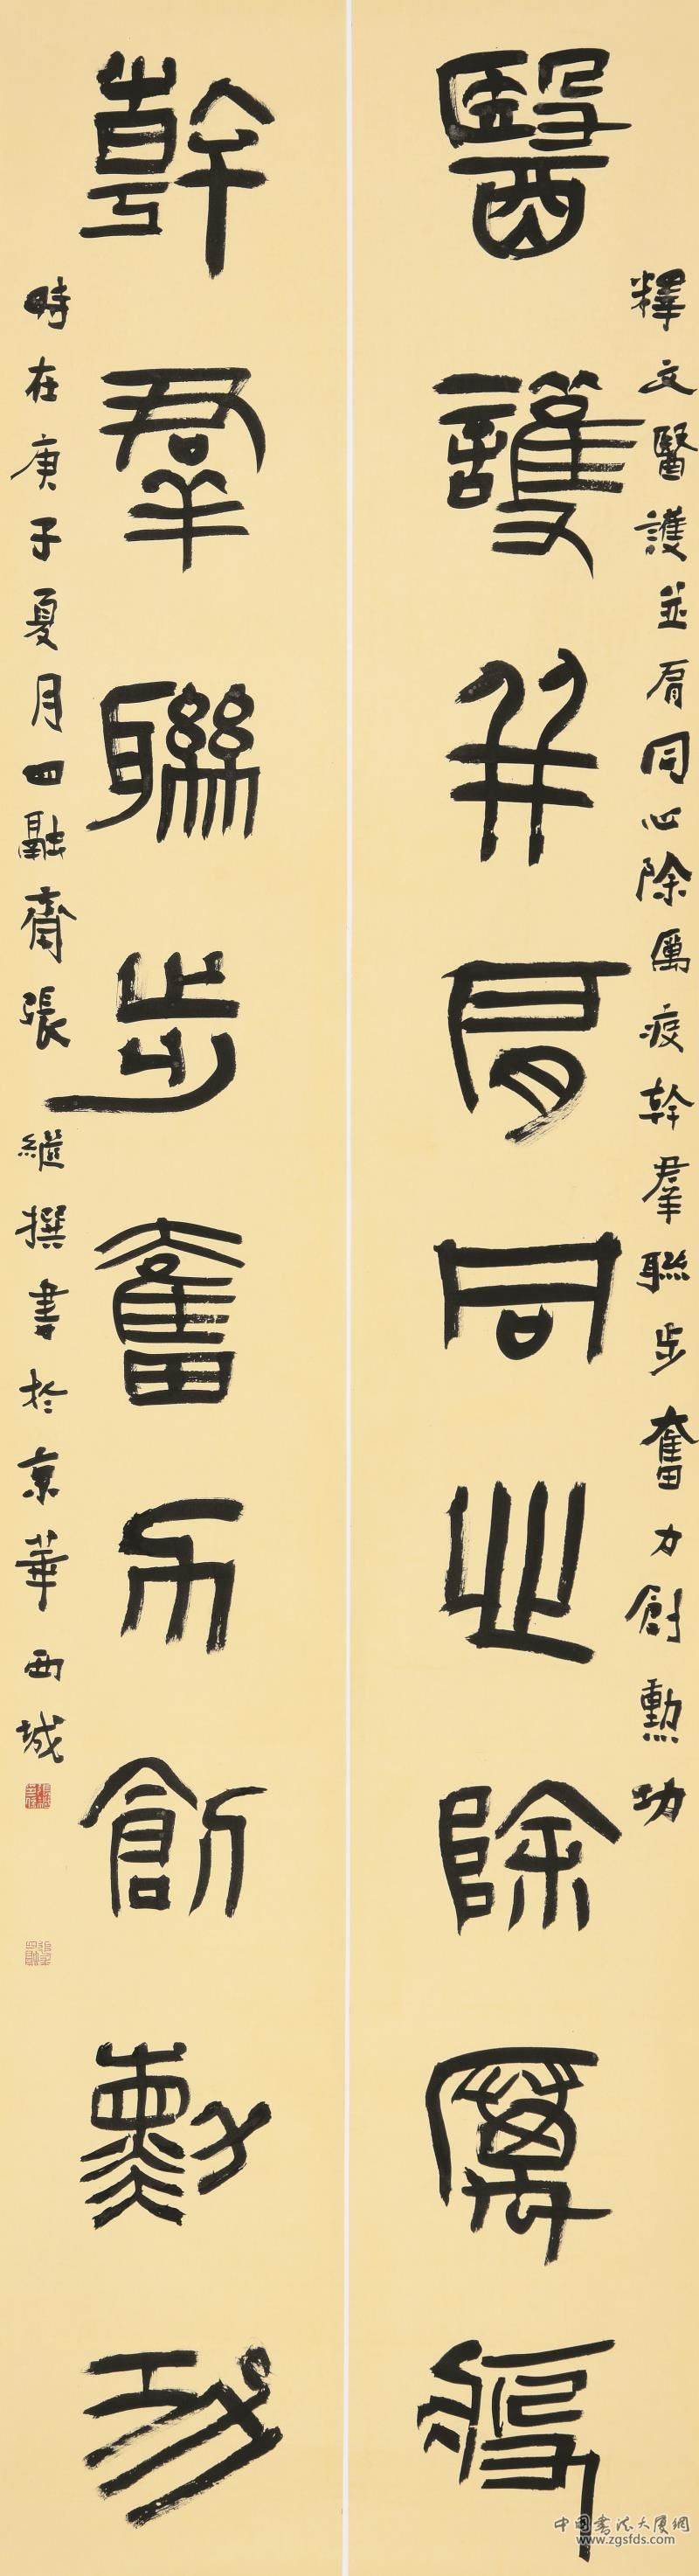 釋文醫護並肩同心除厲疫幹羣聯步奮力創勳功
醫護並肩同心除厲疫
幹羣聯步奮力創勳功
時在庚子夏月四融齋張繼撰書於京華西城
中国书法大厦网
www.zgsfds.com